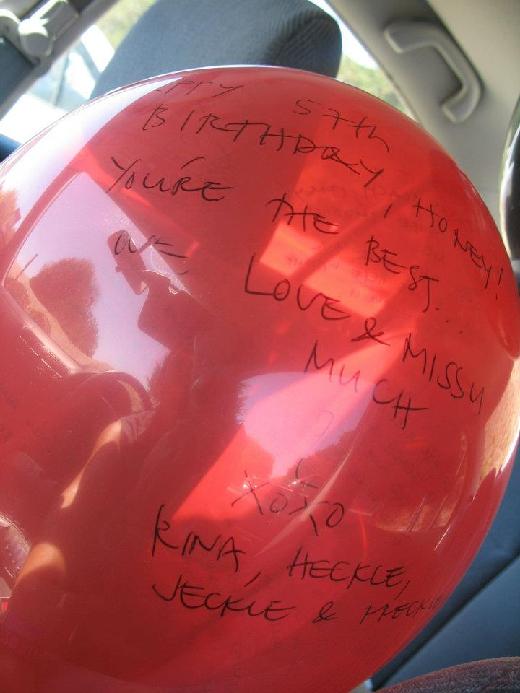 PPY 57th
BIRTHDAY, HONEY!
YOU'RE THE BEST...
WE LOVE & MISS U
MUCH
XOXO
RINA, HECKLE,
JECKLE & FRECKLE